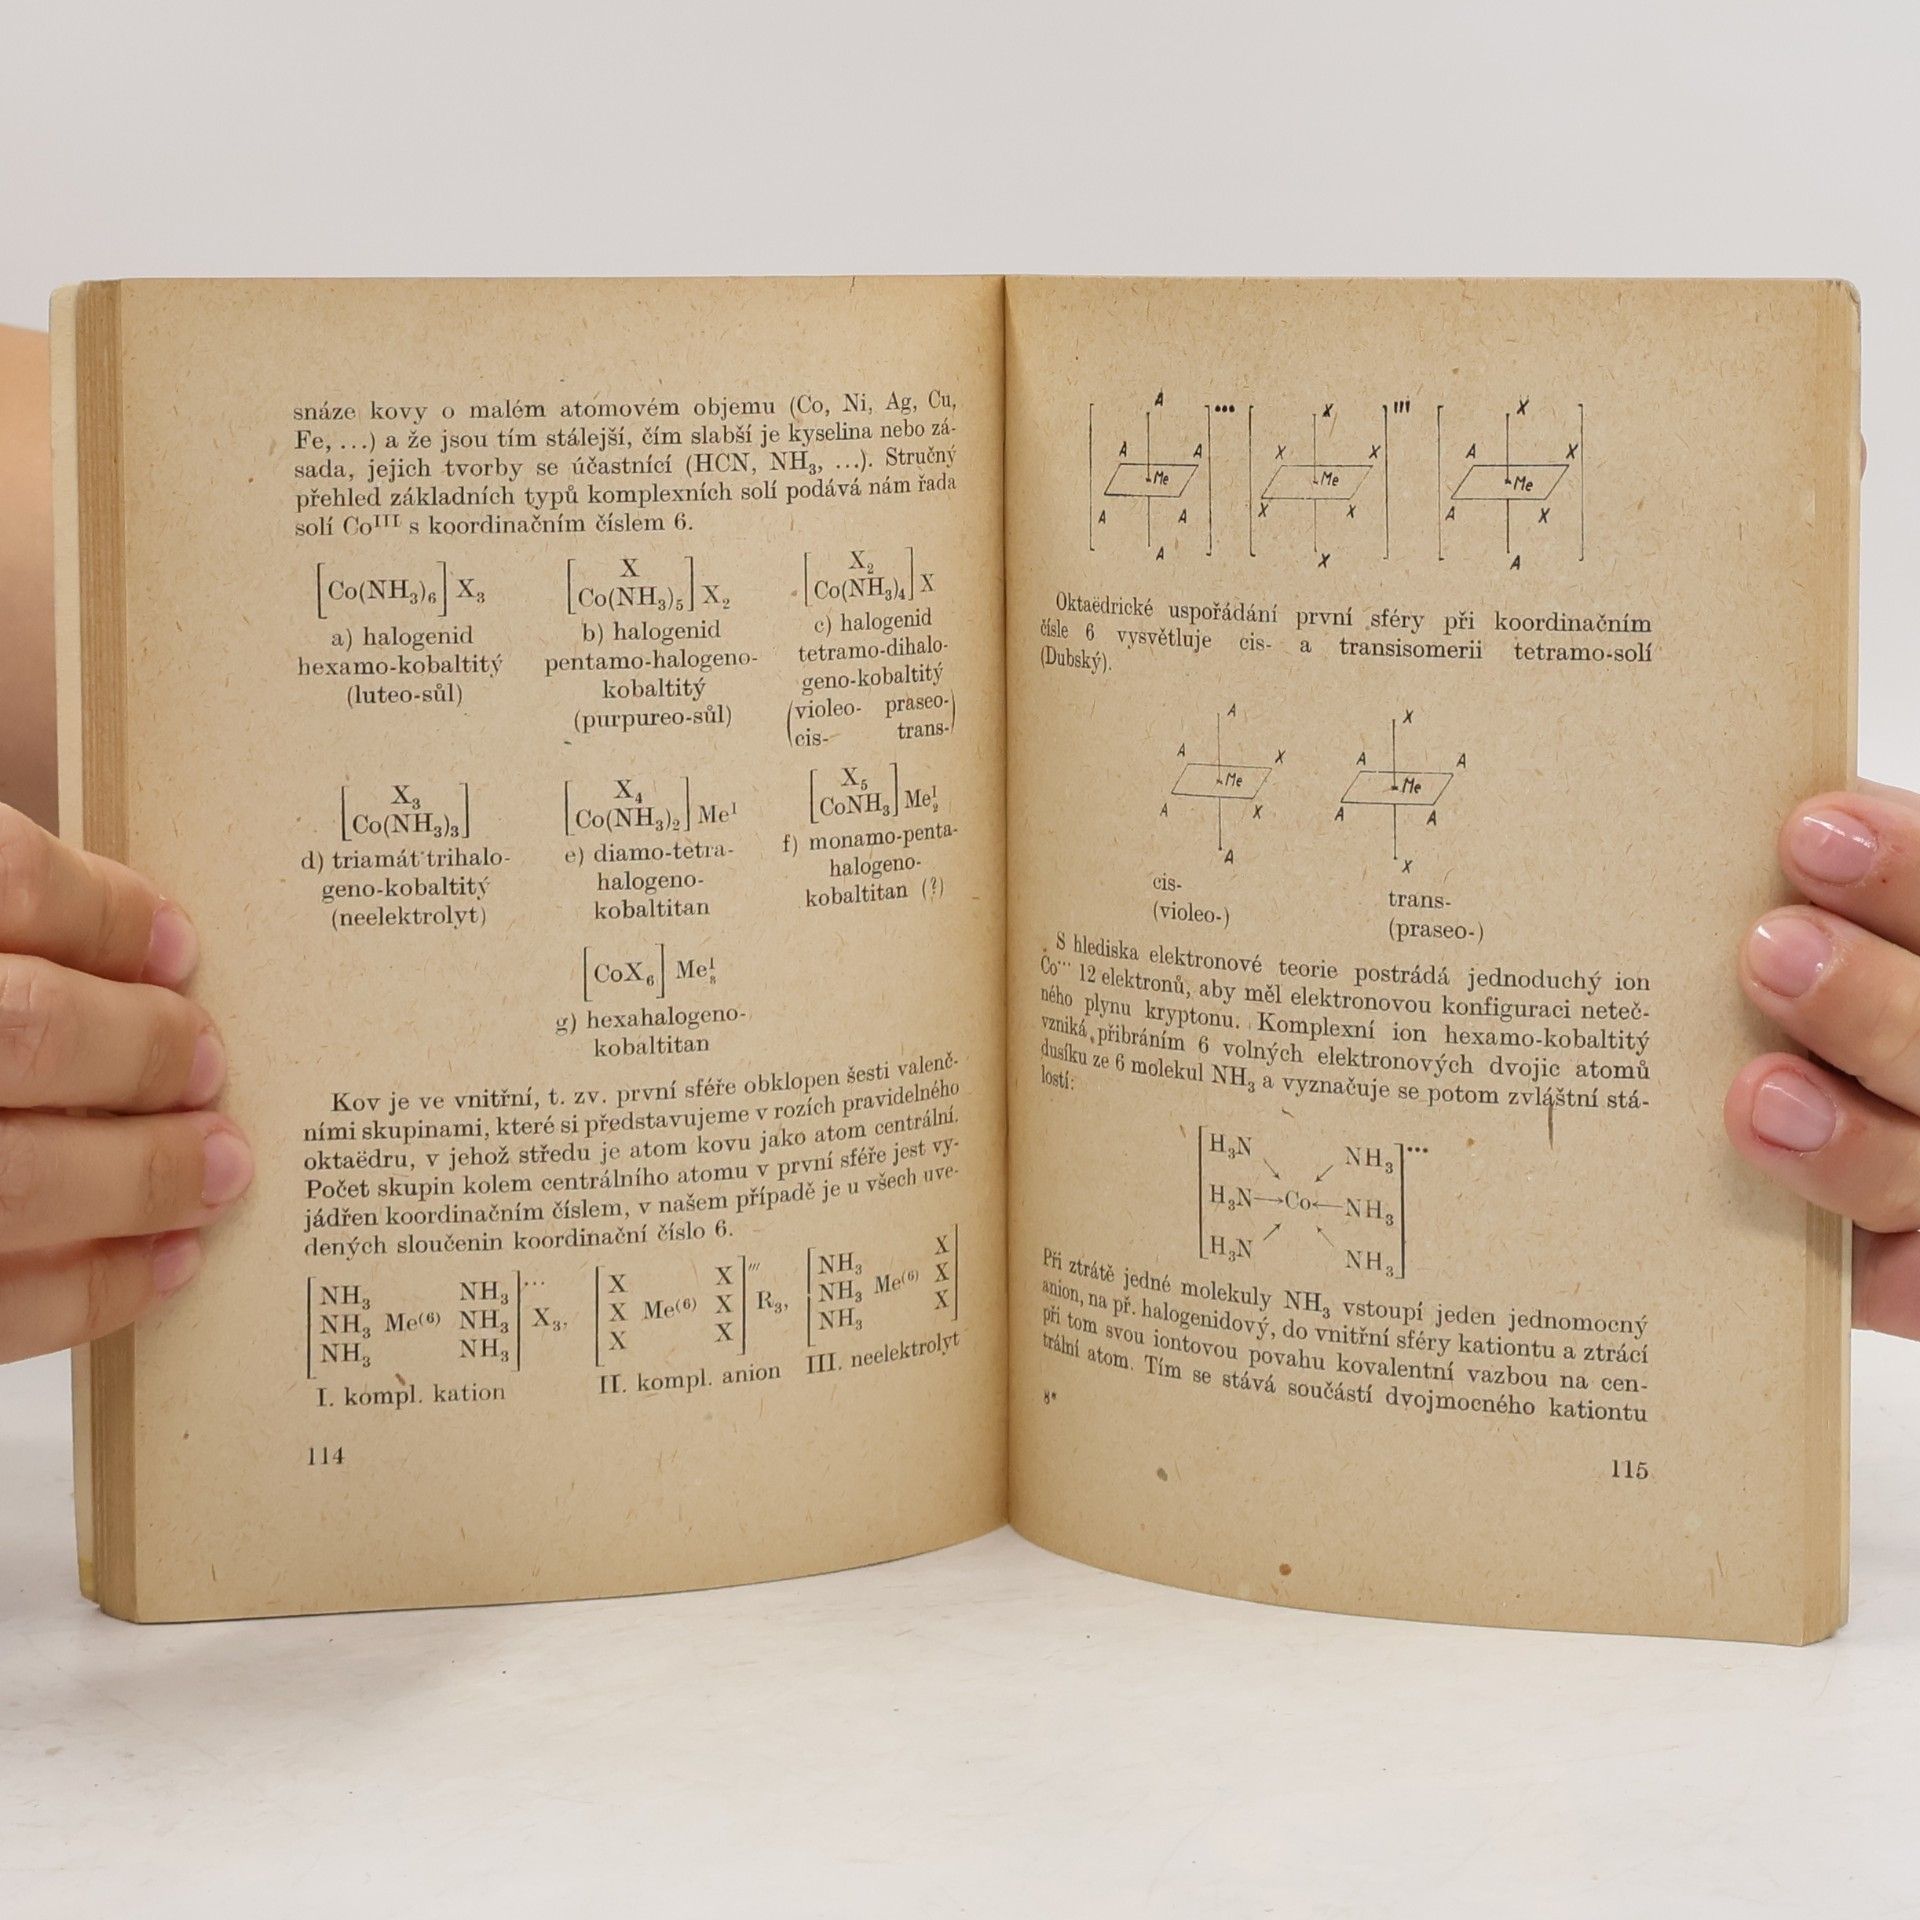 snáze kovy o malém atomovém objemu (Co, Ni, Ag, Cu,
Fe, ...) a že jsou tím stálejší, čím slabší je kyselina nebo zá-
sada, jejich tvorby se účastnící (HCN, NH₃, ...). Stručný
přehled základních typů komplexních solí podává nám řada
solí Coᴵᴵᴵ s koordinačním číslem 6.
[Co(NH₃)₆] X₃
a) halogenid
hexamo-kobaltitý
(luteo-sůl)
X
[Co(NH₃)₅] X₂
b) halogenid
pentamo-halogeno-
kobaltitý
(purpureo-sůl)
X₂
[Co(NH₃)₄] X
c) halogenid
tetramo-dihalo-
geno-kobaltitý
(violeo- praseo-)
(cis- trans-)
X₃
[Co(NH₃)₃]
d) triamát trihalo-
geno-kobaltitý
(neelektrolyt)
X₄
[Co(NH₃)₂] Meᴵ
e) diamo-tetra-
halogeno-
kobaltitan
X₅
[CoNH₃] Meᴵ₂
f) monamo-penta-
halogeno-
kobaltitan (?)
[CoX₆] Meᴵ₃
g) hexahalogeno-
kobaltitan
Kov je ve vnitřní, t. zv. první sféře obklopen šesti valenč-
ními skupinami, které si představujeme v rozích pravidelného
oktaëdru, v jehož středu je atom kovu jako atom centrální.
Počet skupin kolem centrálního atomu v první sféře jest vy-
jádřen koordinačním číslem, v našem případě je u všech uve-
dených sloučenin koordinační číslo 6.
[NH₃ NH₃]···
[NH₃ Me⁽⁶⁾ NH₃] X₃,
[NH₃ NH₃]
I. kompl. kation
[X X]′′′
[X Me⁽⁶⁾ X] R₃,
[X X]
II. kompl. anion
[NH₃ X]
[NH₃ Me⁽⁶⁾ X]
[NH₃ X]
III. neelektrolyt
114
A
A A
Me
A A
A
•••
X
X X
Me
X X
X
′′′
X
A X
Me
A X
A
Oktaëdrické uspořádání první sféry při koordinačním
čísle 6 vysvětluje cis- a transisomerii tetramo-solí
(Dubský).
A
A X
Me
A X
A
cis-
(violeo-)
X
A A
Me
A A
X
trans-
(praseo-)
S hlediska elektronové teorie postrádá jednoduchý ion
Co··· 12 elektronů, aby měl elektronovou konfiguraci neteč-
ného plynu kryptonu. Komplexní ion hexamo-kobaltitý
vzniká přibráním 6 volných elektronových dvojic atomů
dusíku ze 6 molekul NH₃ a vyznačuje se potom zvláštní stá-
lostí:
[H₃N ↘ ↙ NH₃]•••
[H₃N→Co←NH₃]
[H₃N ↗ ↖ NH₃]
Při ztrátě jedné molekuly NH₃ vstoupí jeden jednomocný
anion, na př. halogenidový, do vnitřní sféry kationtu a ztrácí
při tom svou iontovou povahu kovalentní vazbou na cen-
trální atom. Tím se stává součástí dvojmocného kationtu
8*
115